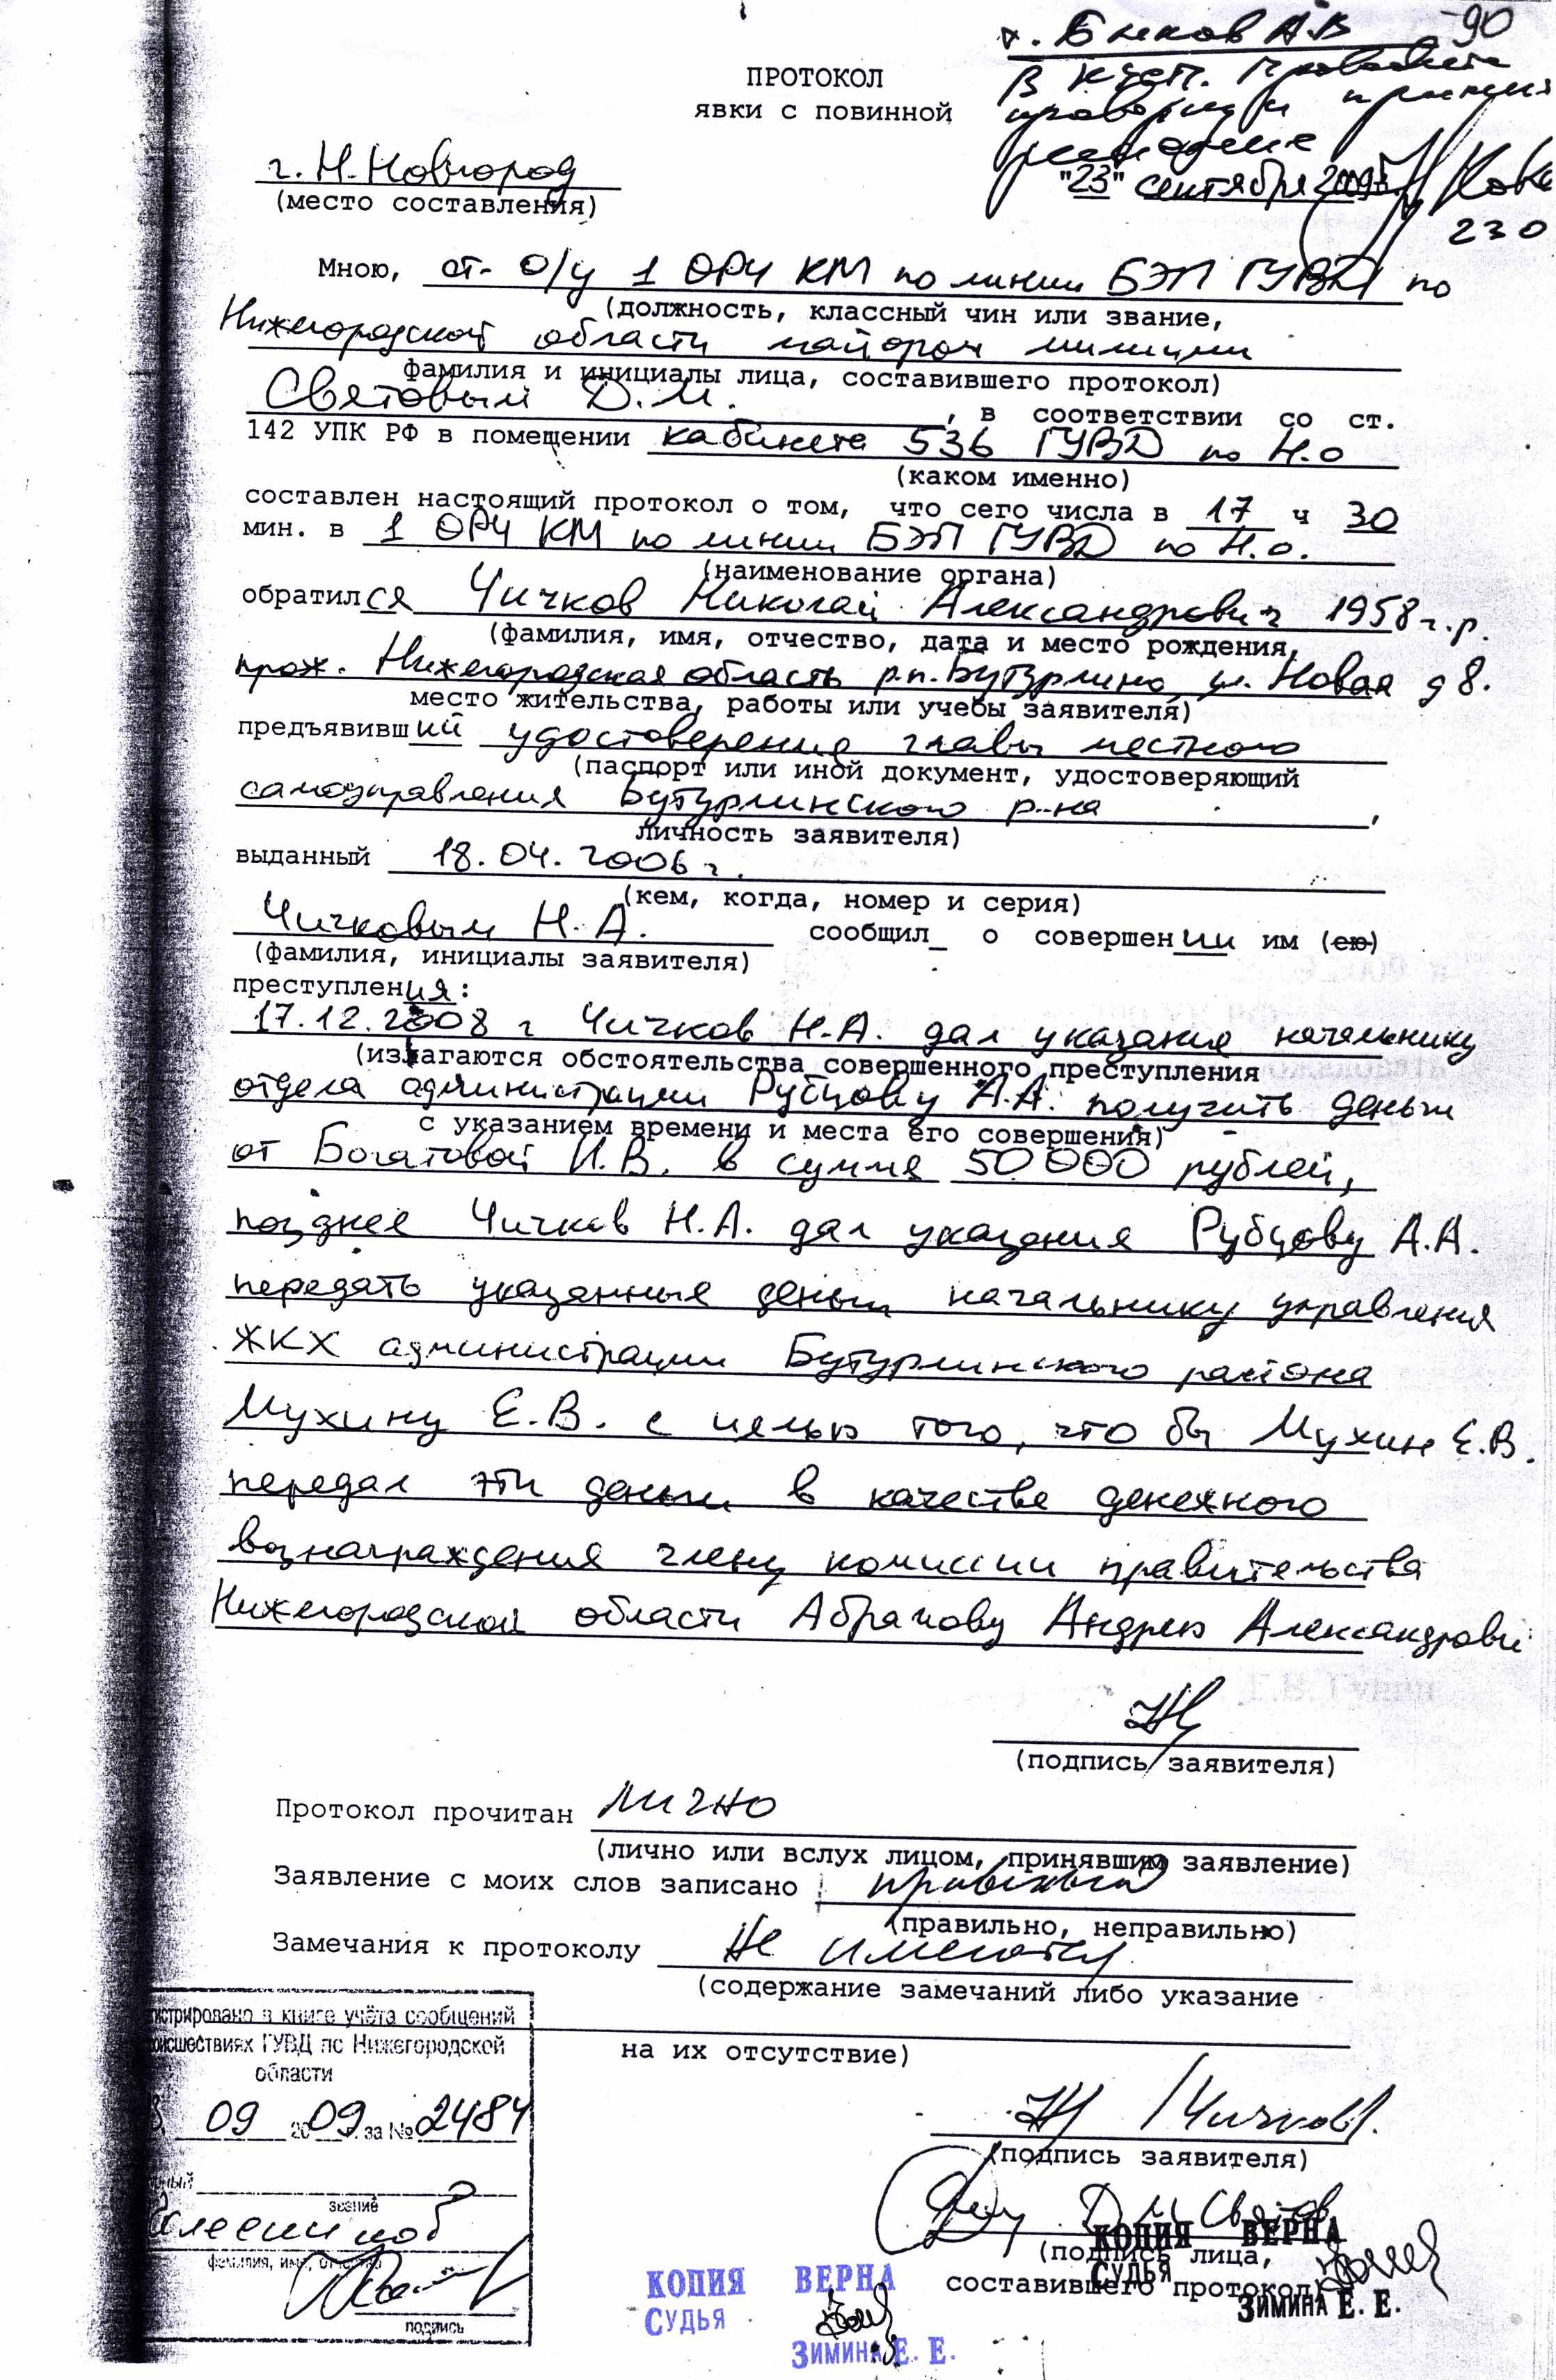 Быков А.В
90
ПРОТОКОЛ
явки с повинной
г. Н. Новгород
"23" сентября 2009
(место составления)
230
Мною, ст. о/у 1 ОРЧ КМ по линии БЭП ГУВД по
(должность, классный чин или звание,
Нижегородской области майором милиции
фамилия и инициалы лица, составившего протокол)
Световым Д.М. , в соответствии со ст.
142 УПК РФ в помещении кабинета 536 ГУВД по Н.о
(каком именно)
составлен настоящий протокол о том, что сего числа в 17 ч 30
мин. в 1 ОРЧ КМ по линии БЭП ГУВД по Н.о.
(наименование органа)
обратился Чичков Николай Александрович 1958 г.р.
(фамилия, имя, отчество, дата и место рождения,
прож. Нижегородская область р.п. Бутурлино, ул. Новая д 8.
место жительства, работы или учебы заявителя)
предъявивший удостоверение главы местного
(паспорт или иной документ, удостоверяющий
самоуправления Бутурлинского р-на ,
личность заявителя)
выданный 18.04.2006 г.
(кем, когда, номер и серия)
Чичковым Н.А. сообщил_ о совершении им (ею)
(фамилия, инициалы заявителя)
преступления:
17.12.2008 г Чичков Н.А. дал указание начальнику
(излагаются обстоятельства совершенного преступления
отдела администрации Рубцову А.А. получить деньги
с указанием времени и места его совершения)
от Богатовой И.В. в сумме 50.000 рублей,
позднее Чичков Н.А. дал указания Рубцову А.А.
передать указанные деньги начальнику управления
ЖКХ администрации Бутурлинского района
Мухину Е.В. с целью того, что бы Мухин Е.В.
передал эти деньги в качестве денежного
вознаграждения члену комиссии правительства
Нижегородской области Абрамову Андрею Александрови
(подпись заявителя)
Протокол прочитан лично
(лично или вслух лицом, принявшим заявление)
Заявление с моих слов записано правильно
(правильно, неправильно)
Замечания к протоколу не имеются
(содержание замечаний либо указание
на их отсутствие)
истрировано в книге учёта сообщений
оисшествиях ГУВД по Нижегородской
области
09 2009 г. за № 2484
звание
фамилия, имя, отчество
подпись
/Чичков/.
(подпись заявителя)
Д М Светов
(подпись лица,
составившего протокол)
КОПИЯ ВЕРНА
СУДЬЯ
ЗИМИНА Е. Е.
КОПИЯ ВЕРНА
СУДЬЯ
ЗИМИНА Е. Е.